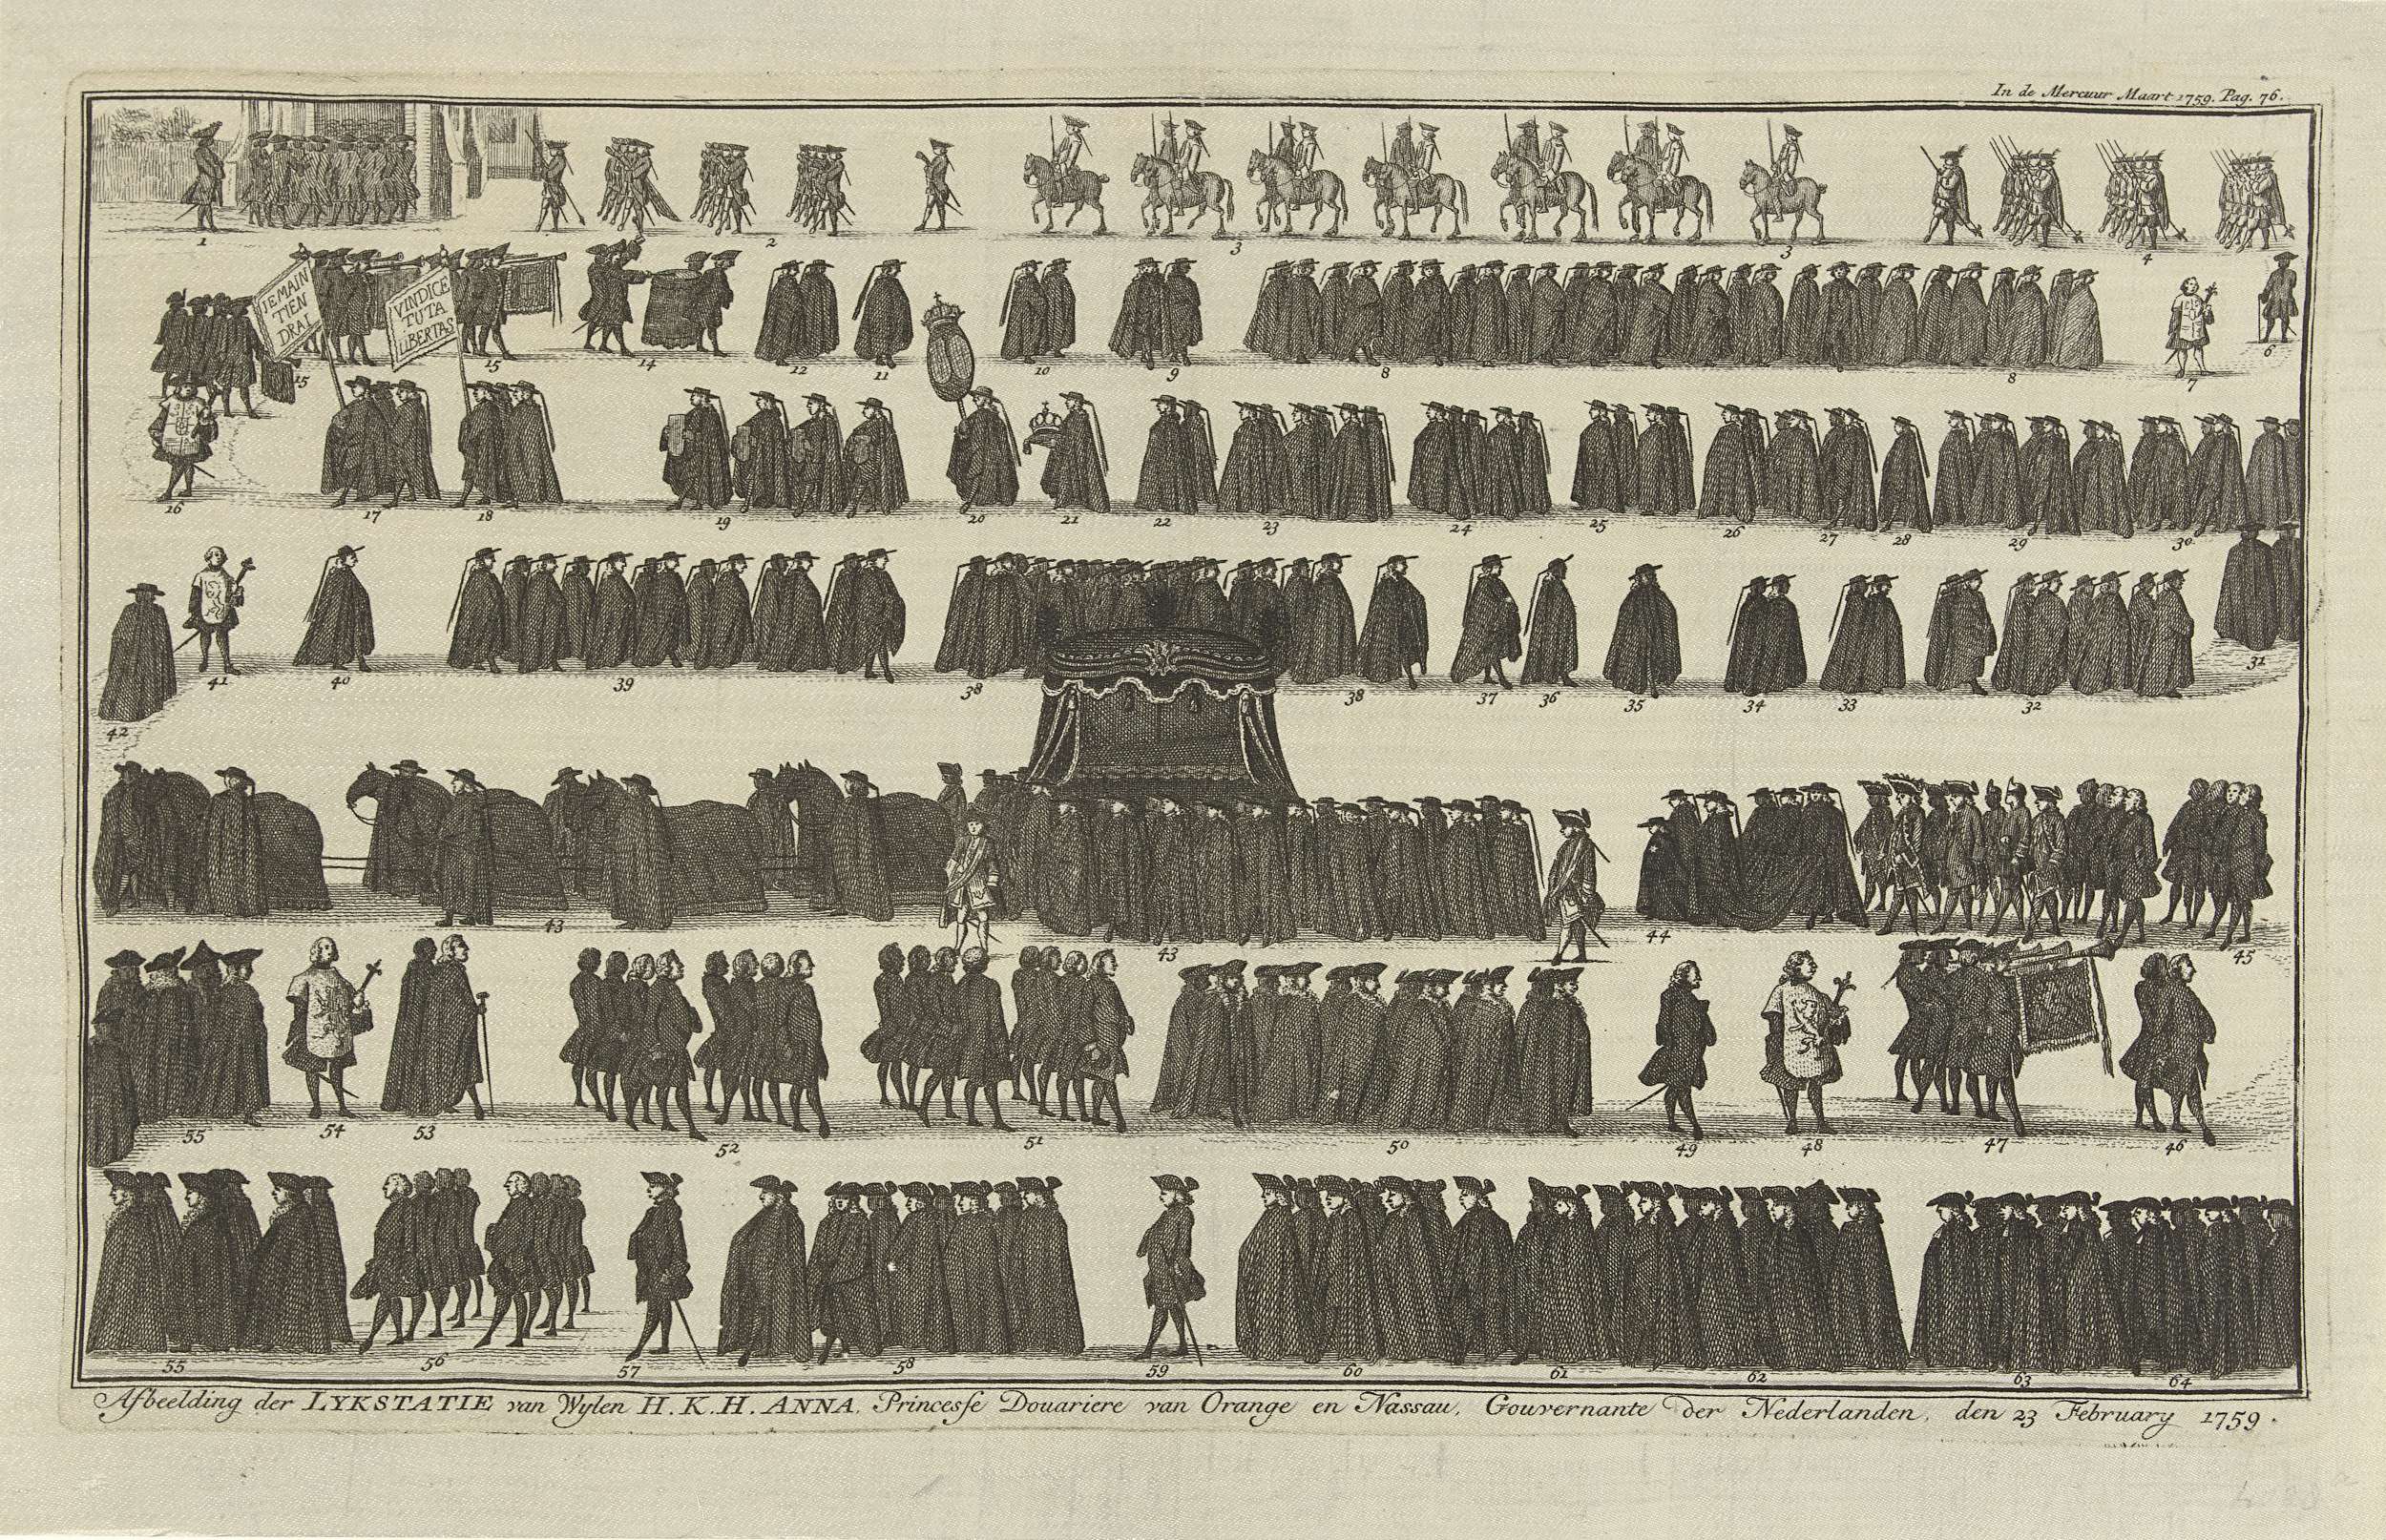 In de Mercuur Maart 1759. Pag. 76.
1 2 3 3 4
JE MAIN
TIEN
DRAI
VINDICE
TUTA
LIBERTAS
15 15 14 12 11 10 9 8 8 7 6
16 17 18 19 20 21 22 23 24 25 26 27 28 29 30
42 41 40 39 38 38 37 36 35 34 33 32 31
43 43 44 45
55 54 53 52 51 50 49 48 47 46
55 56 57 58 59 60 61 62 63 64
Afbeelding der LYKSTATIE van Wylen H. K. H. ANNA, Princesse Douariere van Orange en Nassau, Gouvernante der Nederlanden, den 23 February 1759.